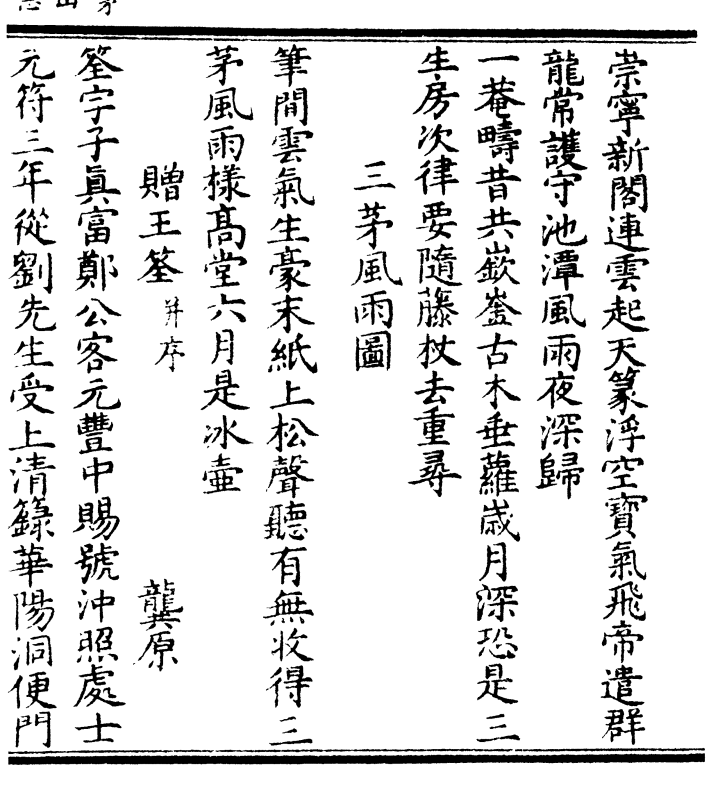 崇寧新閣連雲起天篆浮空寶氣飛帝遣群
龍常護守池潭風雨夜深歸
一菴疇昔共嶔崟古木垂蘿歲月深恐是三
生房次律要隨藤杖去重尋
三茅風雨圖
筆間雲氣生豪末紙上松聲聽有無收得三
茅風雨樣高堂六月是冰壷
贈王筌并序 龔原
筌字子眞富鄭公客元豐中賜號沖照處士
元符三年從劉先生受上清籙華陽洞便門